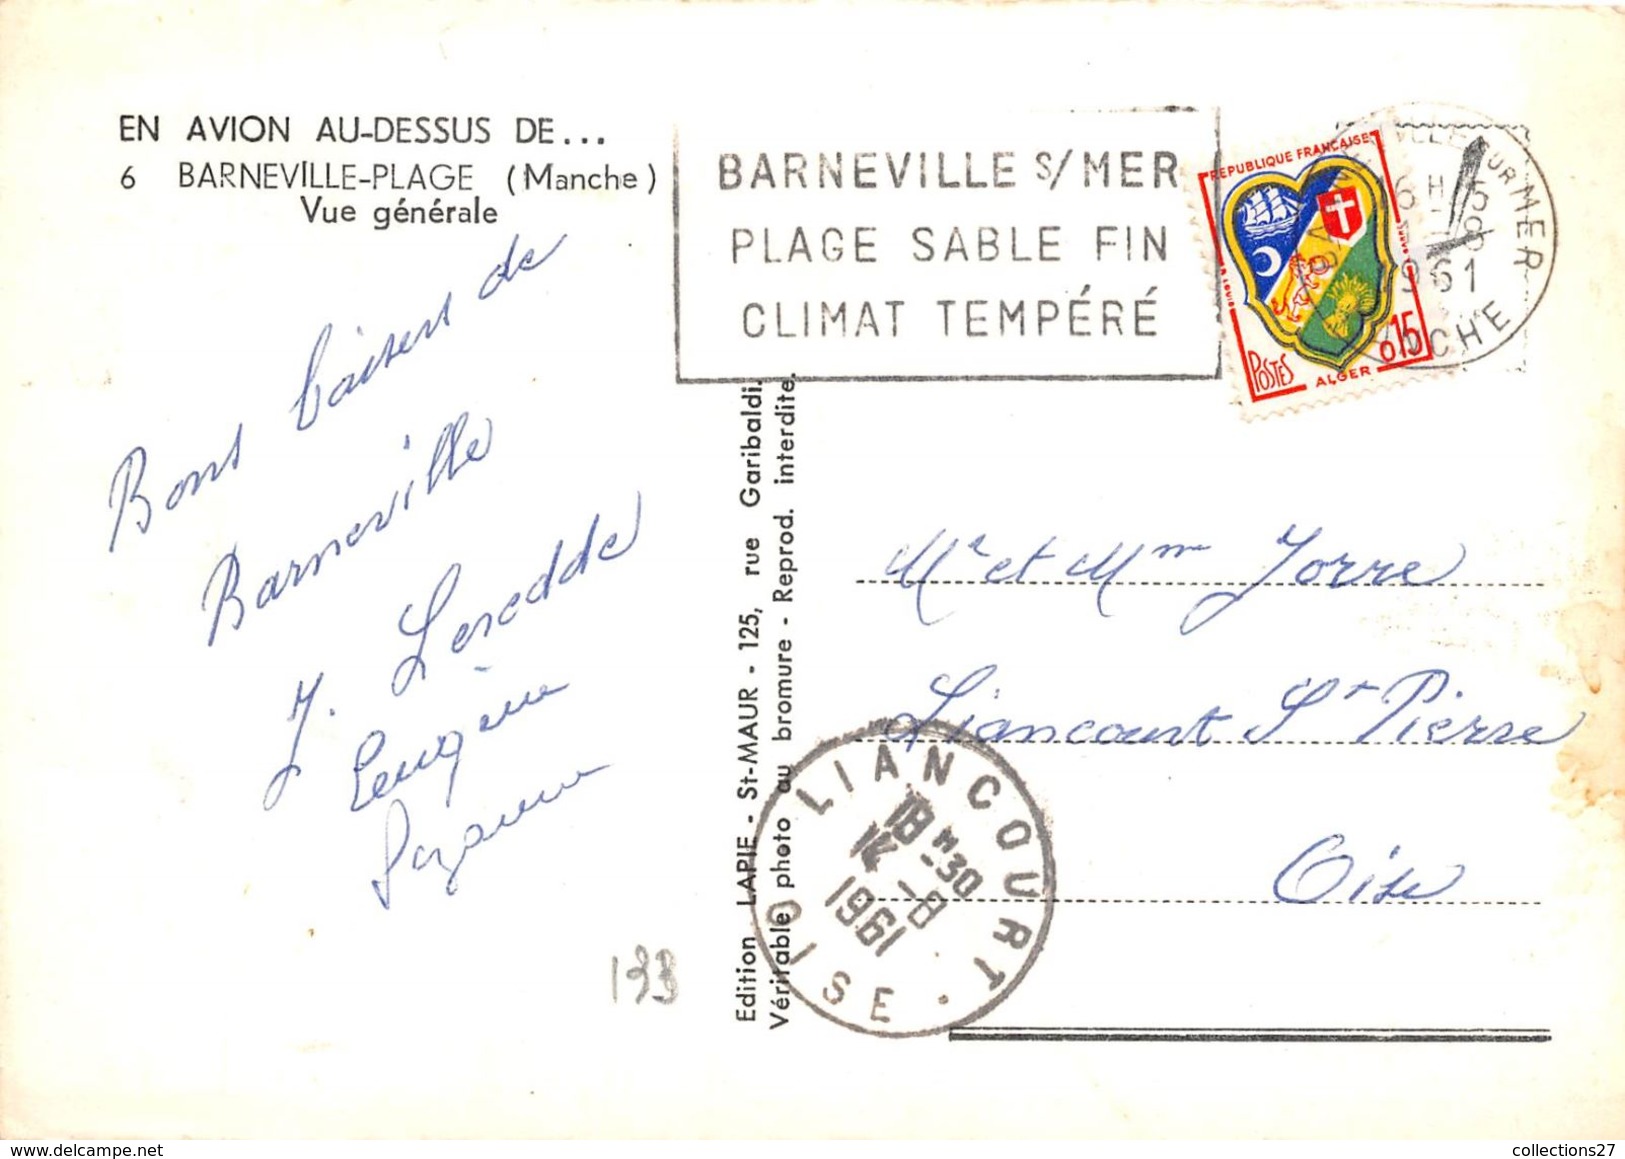 EN AVION AU-DESSUS DE...
6 BARNEVILLE-PLAGE (Manche)
Vue générale
Bons baisers de
Barneville
J. Leredde
Eugène
Suzanne
BARNEVILLE S/MER
PLAGE SABLE FIN
CLIMAT TEMPÉRÉ
REPUBLIQUE FRANÇAISE
POSTES
ALGER
0,15
SUR MER
1961
Edition LAPIE - St-MAUR - 125, rue Garibaldi.
Véritable photo au bromure - Reprod. interdite.
Mr et Mme Jorre
Liancourt St Pierre
Oise
LIANCOURT
18 H 30
14 -8
1961
OISE
133
collections27